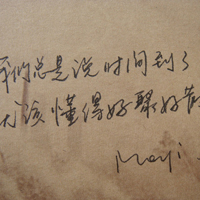 我们总是说时间到了
应该懂得好聚好散